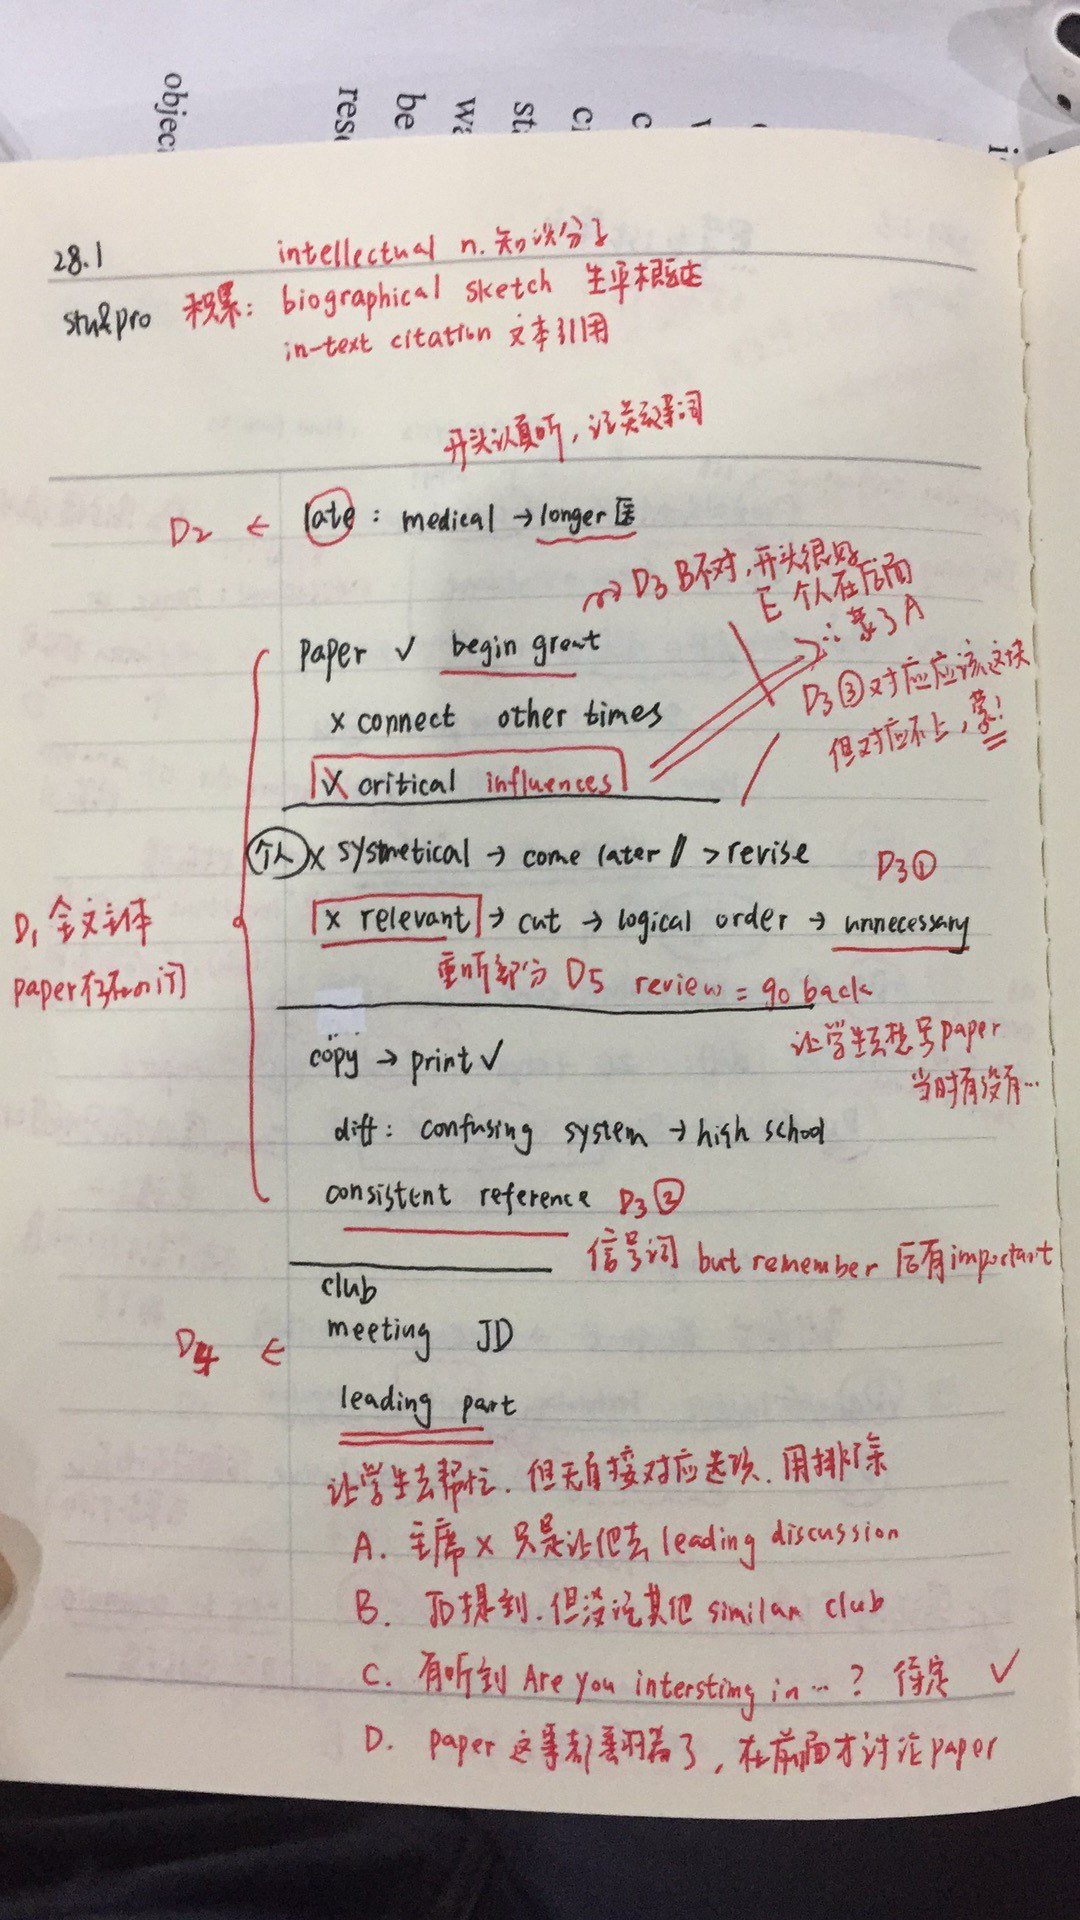 objec
res
be
wa
st
c
c
28.1
intellectual n. 知识分子
stu&pro 积累: biographical sketch 生平概述
in-text citation 文本引用
开头认真听, 记关键词
D2 ← late : medical → longer 医
→ D3 B不对, 开头很好
E 个人在后面
∴ 蒙了A
paper ✓ begin great
x connect other times
D3 ③ 对应应该这块
但对应不上, 蒙!
x critical influences
个人 x systmetical → come later // > revise
D3 ①
x relevant → cut → logical order → unnecessary
D1 全文主体
重听部分 D5 review = go back
让学生去想写paper
当时有没有…
copy → print ✓
diff: confusing system → high school
consistent reference D3 ②
信号词 but remember 后有important
club
D4 ← meeting JD
leading part
让学生去帮忙. 但无直接对应选项. 用排除
A. 主席 x 只是让他去 leading discussion
B. JD提到. 但没说其他 similar club
C. 有听到 Are you intersting in … ? 待定 ✓
D. paper 这事都弄好了, 在前面才讨论 paper